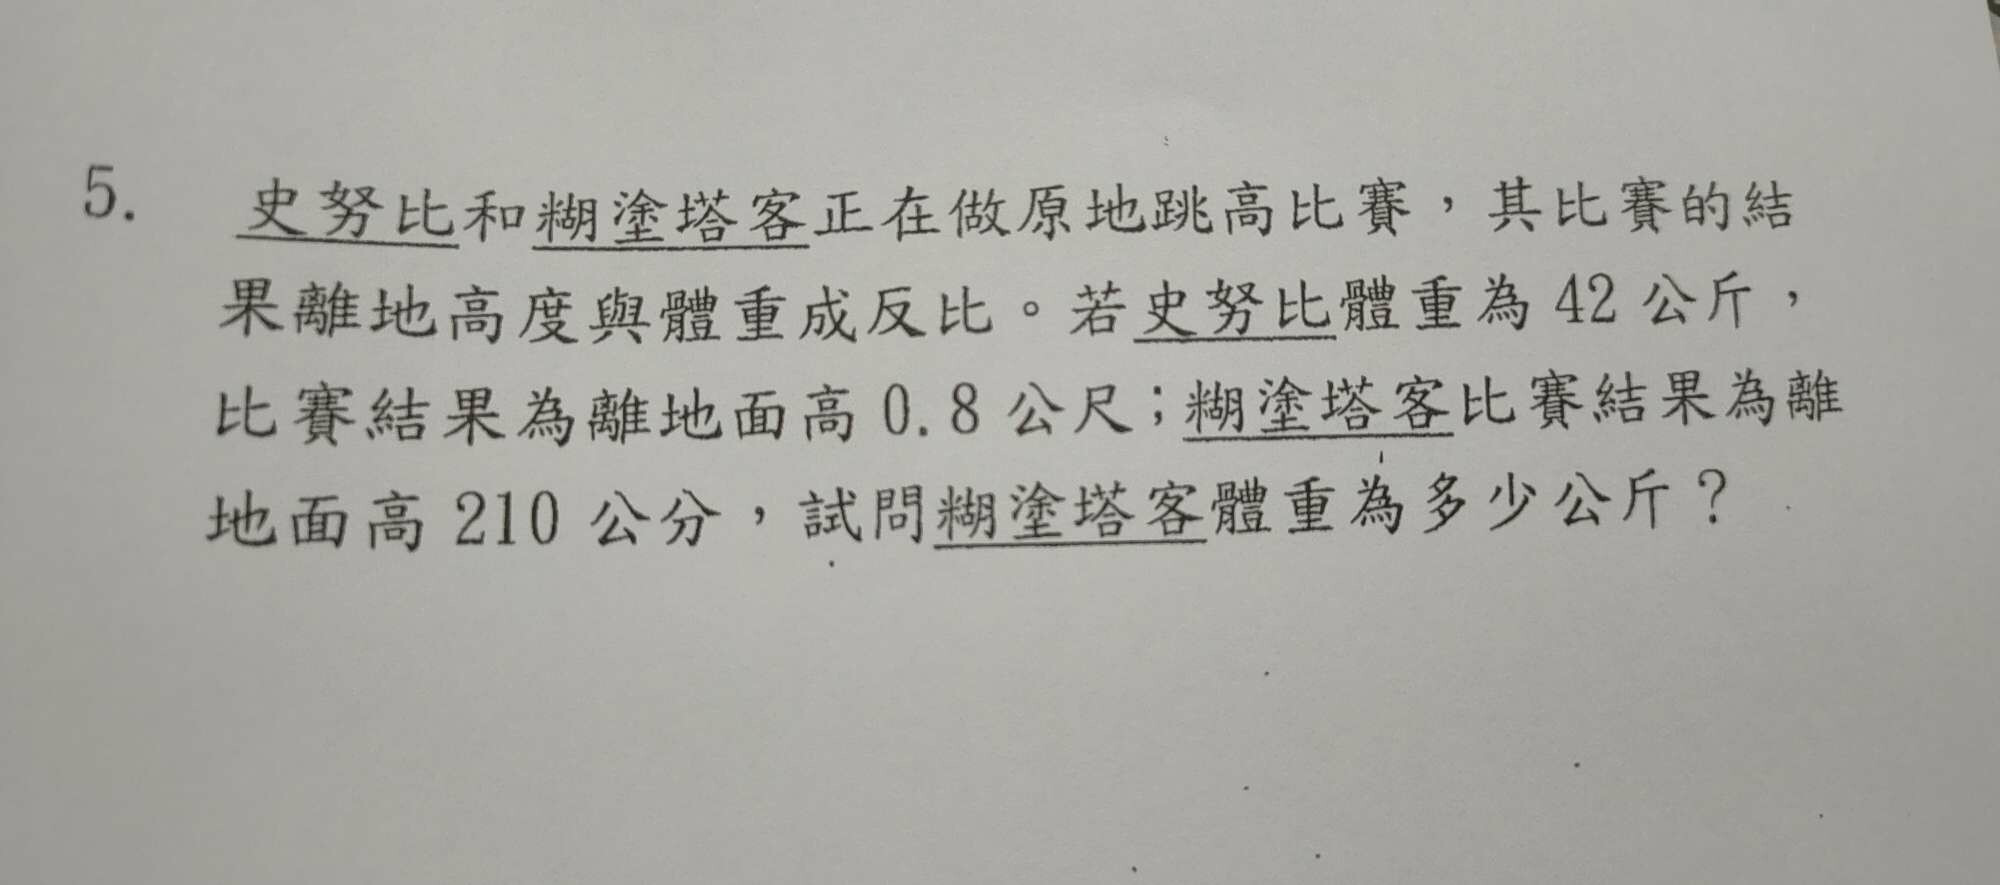 5. 史努比和糊塗塔客正在做原地跳高比賽，其比賽的結
果離地高度與體重成反比。若史努比體重為 42 公斤，
比賽結果為離地面高 0.8 公尺；糊塗塔客比賽結果為離
地面高 210 公分，試問糊塗塔客體重為多少公斤？